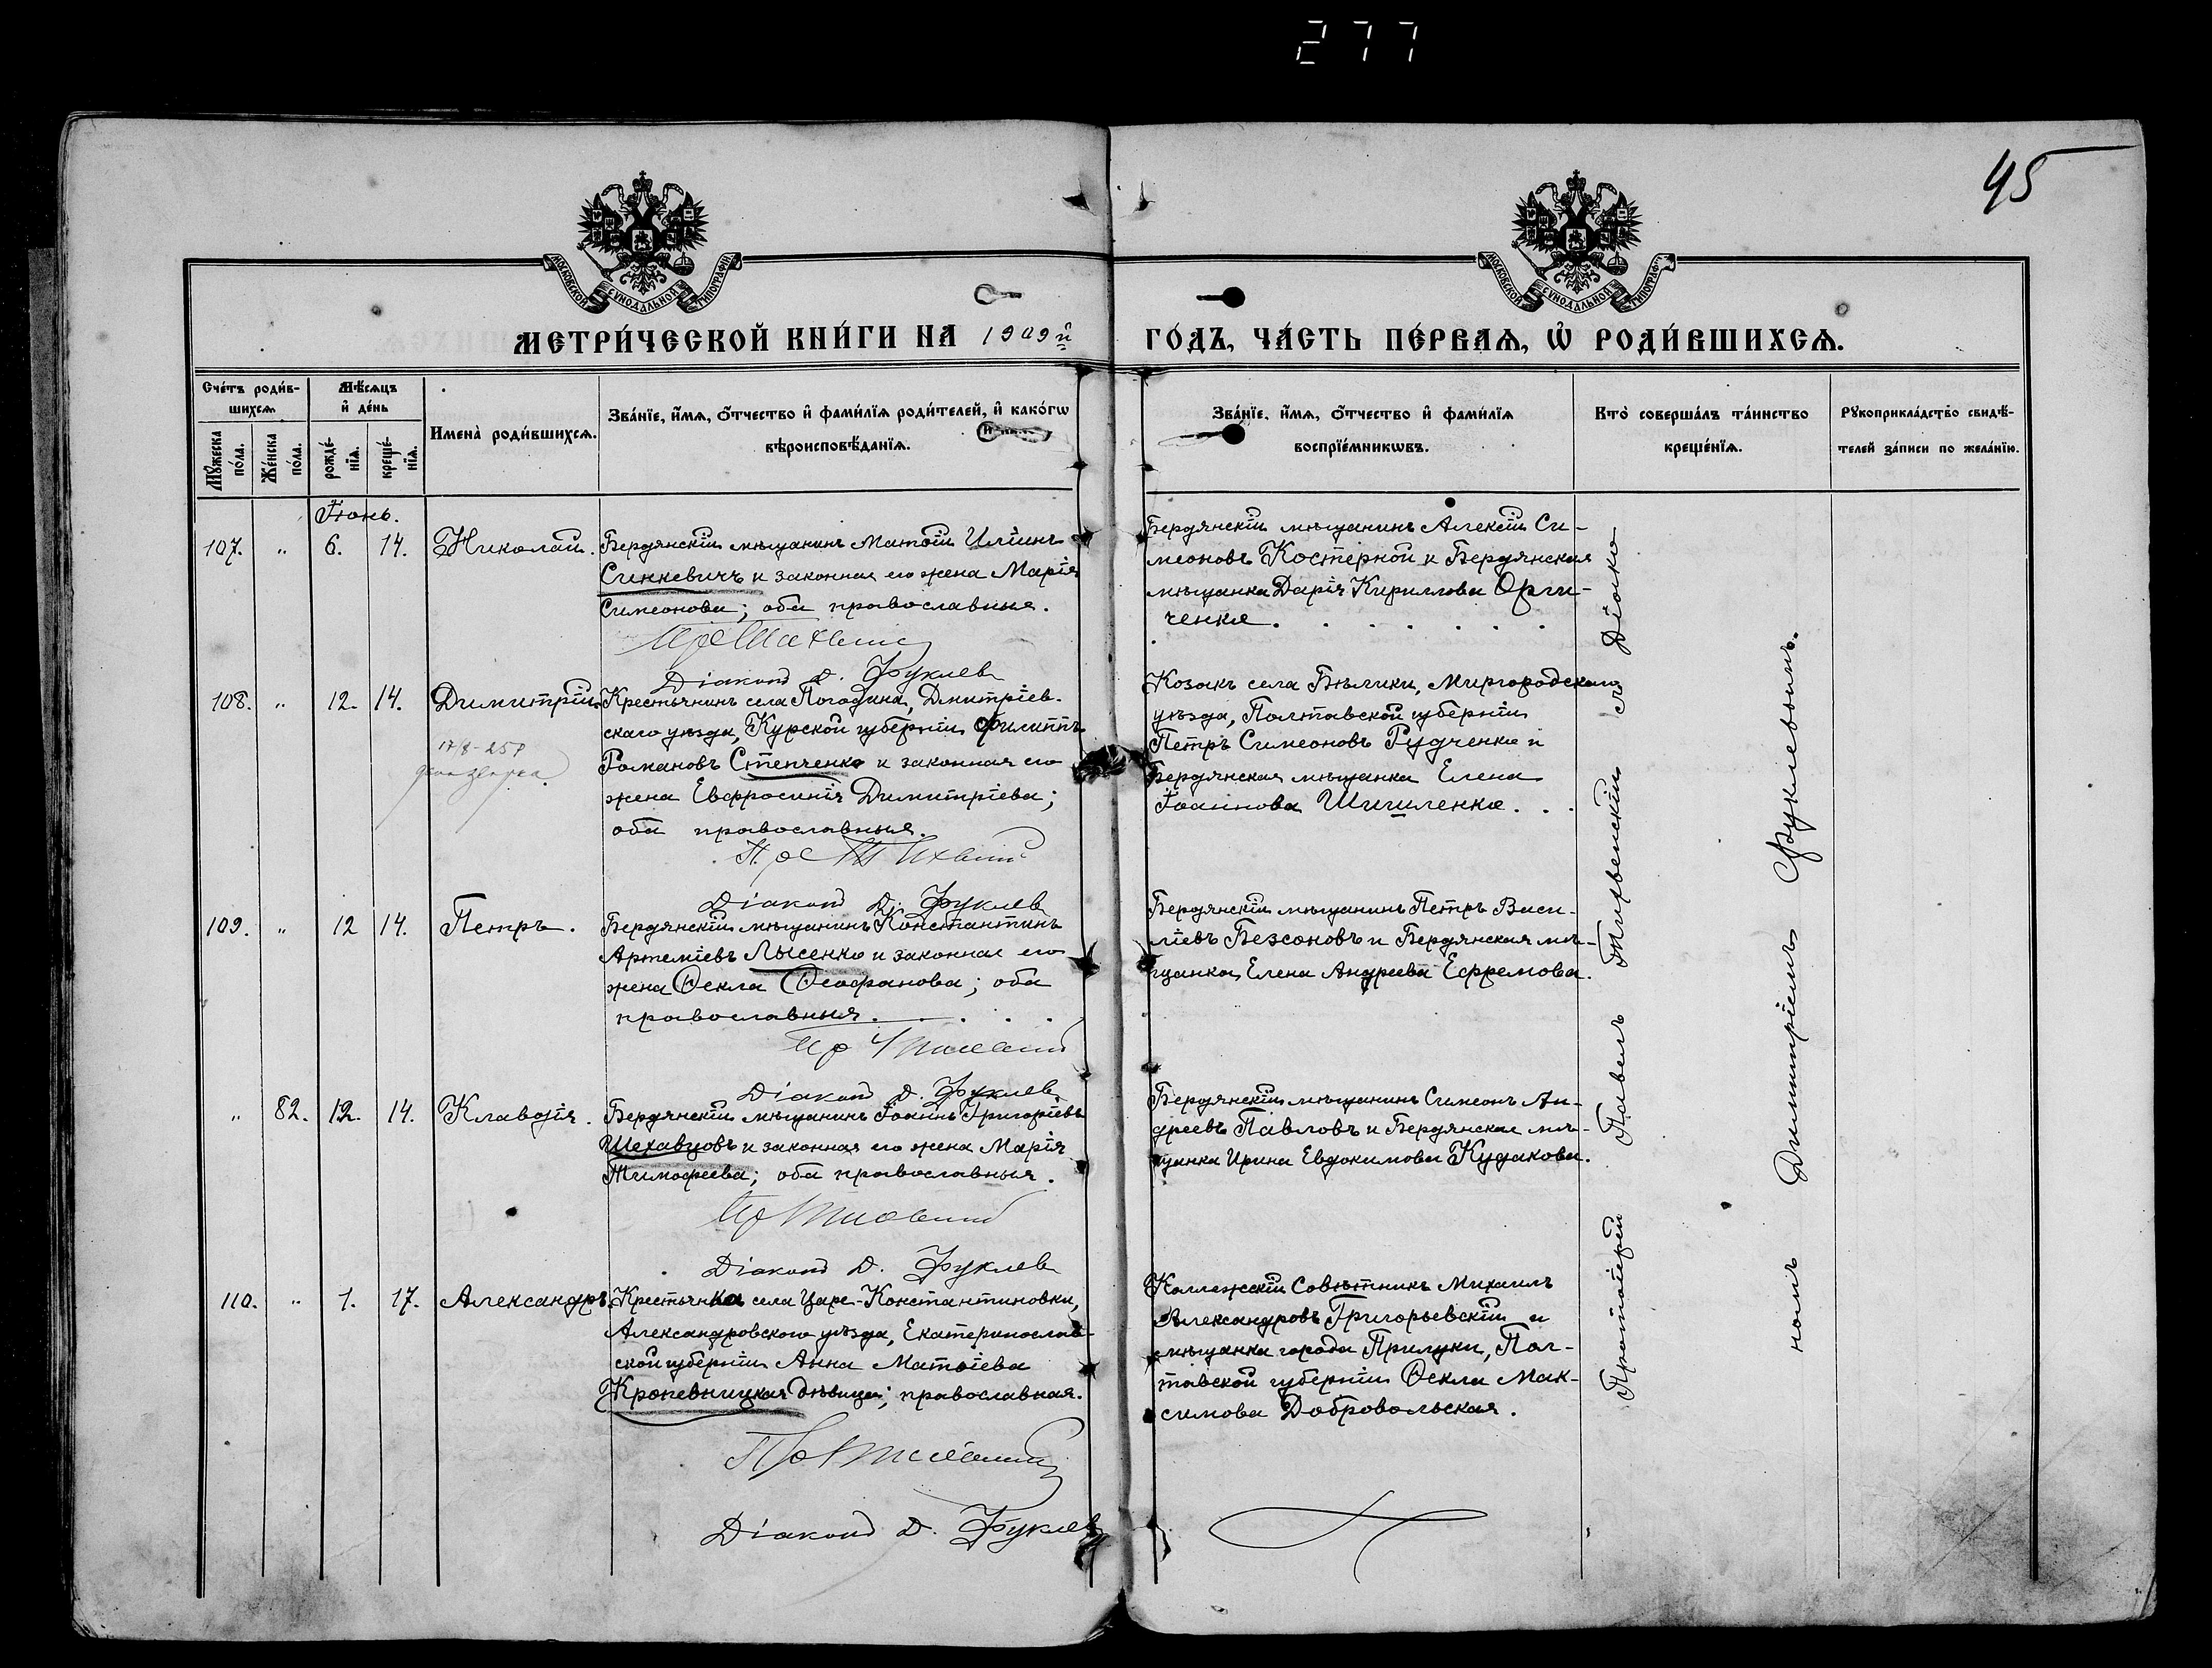 277
45
МОСКОВСКОЙ СУНОДАЛЬНОЙ ТИПОГРАФІИ
МОСКОВСКОЙ СУНОДАЛЬНОЙ ТИПОГРАФІИ
МЕТРИ́ЧЕСКОЙ КНИ́ГИ НА 1909й ГО́ДЪ, ЧА́СТЬ ПЕ́РВАѦ, Ѡ҆ РОДИ́ВШИХСѦ.
Сче́тъ роди́в-
шихсѧ
Мѣ́сѧцъ
и҆ де́нь
Мꙋ́жеска по́ла.
Же́нска по́ла.
рожде́-
нїѧ.
креще́-
нїѧ.
Имена̀ роди́вшихсѧ.
Зва́нїе, и҆́мѧ, ѻ҆́тчество и҆ фами́лїѧ роди́телей, и҆ како́гѡ
вѣроисповѣ́данїѧ.
Зва́нїе, и҆́мѧ, ѻ҆́тчество и҆ фами́лїѧ
воспрїе́мникѡвъ.
Кто̀ соверша́лъ та́инство
креще́нїѧ.
Рꙋкоприкла́дство свидѣ́-
телей за́писи по жела́нїю.
Іюнь.
107. " 6. 14. Николай. Бердянскій мѣщанинъ Матѳій Иліинъ
Синкевичъ и законная его жена Марія
Симеонова; оба православные.
Діаконъ Д. Фуклев
Бердянскій мѣщанинъ Алексій Си-
меоновъ Костерной и Бердянская
мѣщанка Дарія Кириллова
ченко.
108. " 12. 14. Димитрій Крестьянинъ села Погодина, Дмитріев-
скаго уѣзда, Курской губерніи Филиппъ
Романовъ Степченко и законная его
жена Евфросинія Димитріева;
оба православныя.
Діаконъ Д. Фуклев
Козакъ села Бѣлики, Миргородскаго
уѣзда, Полтавской губерніи
Петръ Симеоновъ Рудченко и
Бердянская мѣщанка Елена
Іоаннова Шишленко.
109. " 12 14. Петръ. Бердянскій мѣщанинъ Константинъ
Артеміевъ Лысенко и законная его
жена Ѳекла Ѳеофанова; оба
православныя.
Діаконъ Д. Фуклев
Бердянскій мѣщанинъ Петръ Васи-
ліевъ Безсоновъ и Бердянская мѣ-
щанка Елена Андреева Ефремова.
" 82. 12. 14. Клавдія. Бердянскій мѣщанинъ Іоаннъ Григоріевъ
Шехавцовъ и законная его жена Марія
Тимофеева; оба православныя.
Діаконъ Д. Фуклев
Бердянскій мѣщанинъ Симеонъ Ан-
дреевъ Павловъ и Бердянская мѣ-
щанка Ирина Евдокимова Кудакова.
110. " 1. 17. Александръ. Крестьянка села Царе-Константиновки,
Александровскаго уѣзда, Екатеринослав-
ской губерніи Анна Матѳіева
Кропевницкая дѣвица; православная.
Діаконъ Д. Фуклев
Коллежскій Совѣтникъ Михаилъ
Александровъ Григорьевскій и
мѣщанка города Прилуки, Пол-
тавской губерніи Ѳекла Мак-
симова Добровольская.
Протоіерей Павелъ Тихвенскій съ Діако-
номъ Димитріемъ Фуклевымъ.